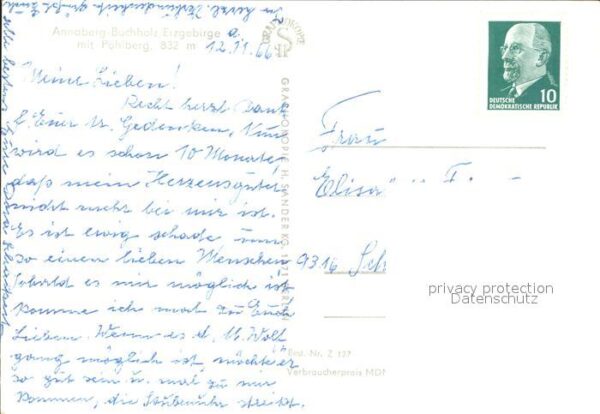 Annaberg-Buchholz Erzgebirge
mit Pöhlberg, 832 m
12.11.66
Meine Lieben!
Recht herzl. Dank
f. Euer lb. Gedenken. Nun
wird es schon 10 Monate,
daß mein Herzensguter
nicht mehr bei mir ist.
Es ist ewig schade um
so einen lieben Menschen
Sobald es mir möglich ist
komme ich mal zu Euch
Lieben. Wenn es d. lb. Wolf
gang möglich ist möchte er
so gut sein u. mal zu mir
kommen, die Stubenuhr streikt.
GRAPHOKOPIE
GRAPHOKOPIE H. SANDER KG,
10
DEUTSCHE
DEMOKRATISCHE REPUBLIK
Frau
Elisa T.
9316 Sch
privacy protection
Datenschutz
Best. Nr. Z 127
Verbraucherpreis MDN